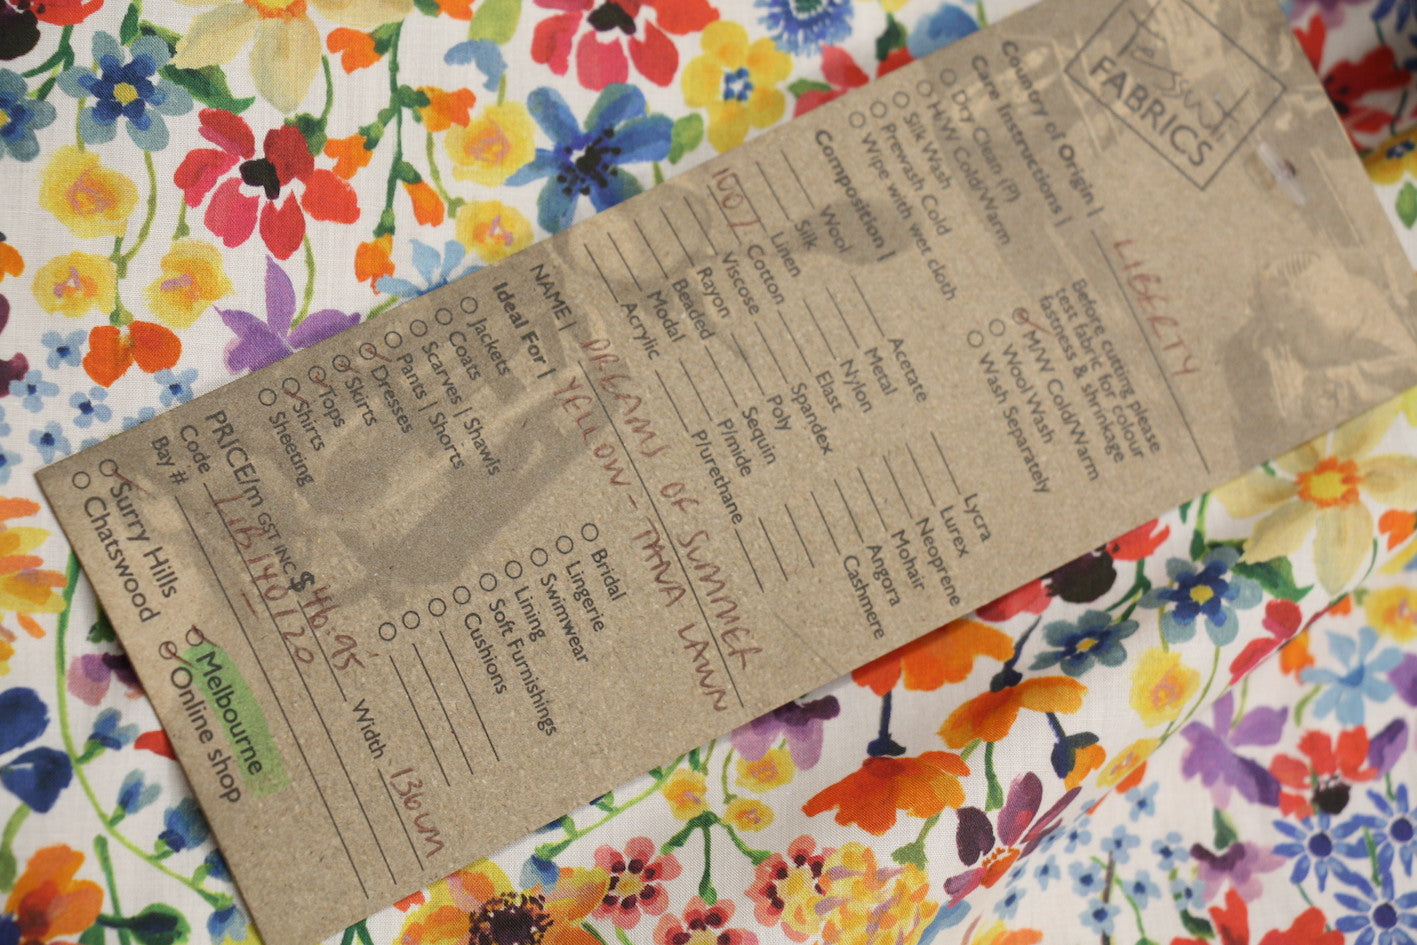 Tessuti
FABRICS
Country of Origin | LIBERTY
Care Instructions |
Dry Clean (P)
H/W Cold/Warm
Silk Wash
Prewash Cold
Wipe with wet cloth
Before cutting please
test fabric for colour
fastness & shrinkage
M/W Cold/Warm
Wool Wash
Wash Separately
Composition |
Wool
Silk
Linen
100% Cotton
Viscose
Rayon
Beaded
Modal
Acrylic
Acetate
Metal
Nylon
Elast
Spandex
Poly
Sequin
P/mide
P/urethane
Lycra
Lurex
Neoprene
Mohair
Angora
Cashmere
NAME | DREAMS OF SUMMER
YELLOW - TANA LAWN
Ideal For |
Jackets
Coats
Scarves | Shawls
Pants | Shorts
Dresses
Skirts
Tops
Shirts
Sheeting
Bridal
Lingerie
Swimwear
Lining
Soft Furnishings
Cushions
PRICE/m GST INC $46.95 Width 136cm
Code LIB140120
Bay #
Surry Hills
Chatswood
Melbourne
Online shop